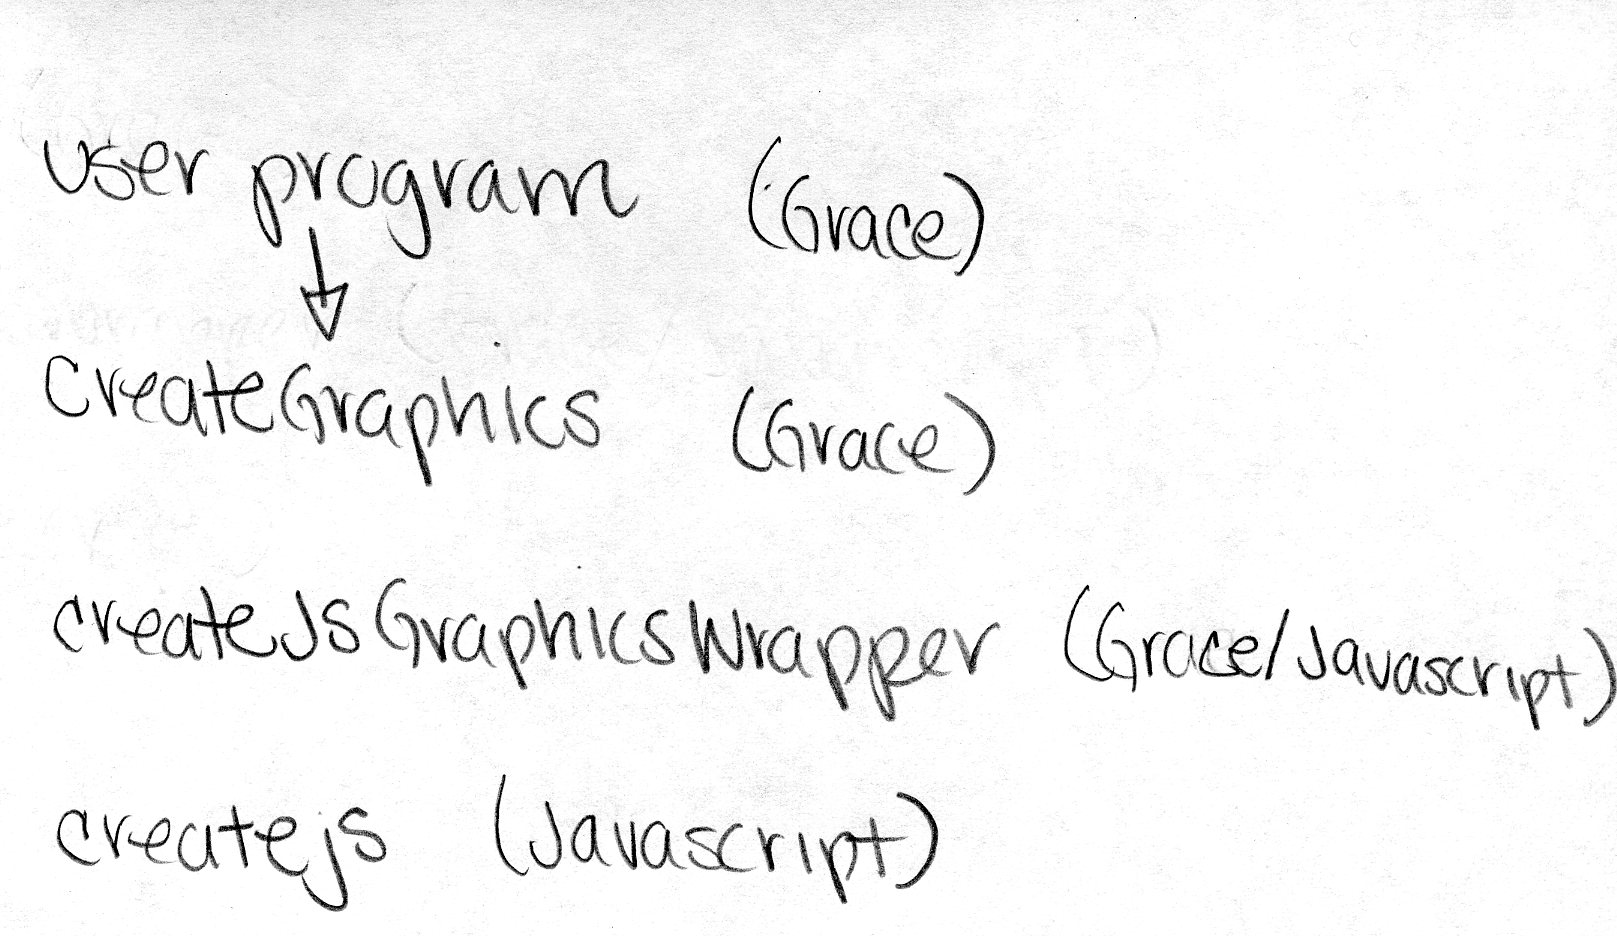 user program (Grace)
createGraphics (Grace)
createJsGraphicsWrapper (Grace/Javascript)
createjs (Javascript)